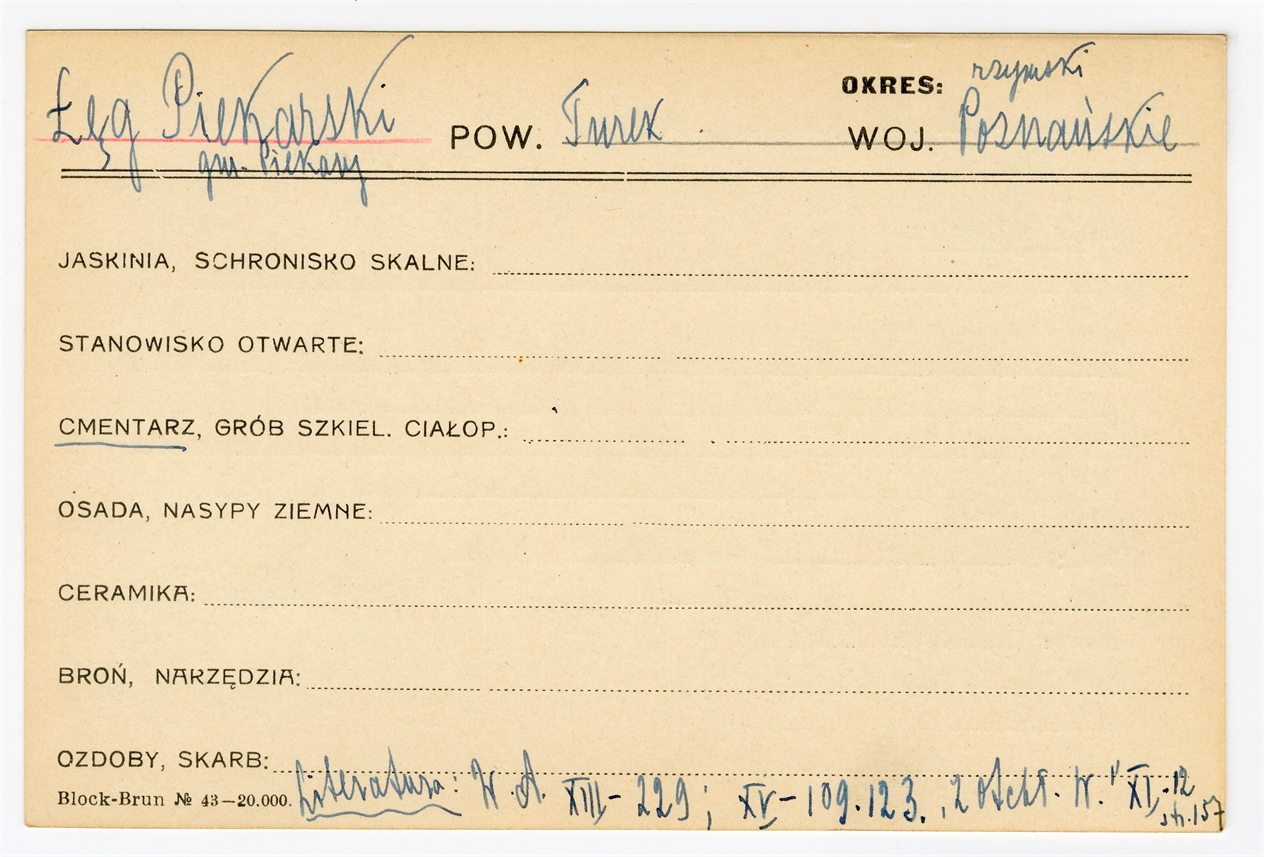 Łęg Piekarski POW. Turek OKRES: rzymski
gm. Piekary WOJ. Poznańskie
JASKINIA, SCHRONISKO SKALNE:
STANOWISKO OTWARTE:
CMENTARZ, GRÓB SZKIEL. CIAŁOP.:
OSADA, NASYPY ZIEMNE:
CERAMIKA:
BROŃ, NARZĘDZIA:
OZDOBY, SKARB:
Block-Brun № 43—20.000. Literatura: W. A. XIII - 229; XV - 109.123. "Z Otchł. W." XI.-12
str. 157